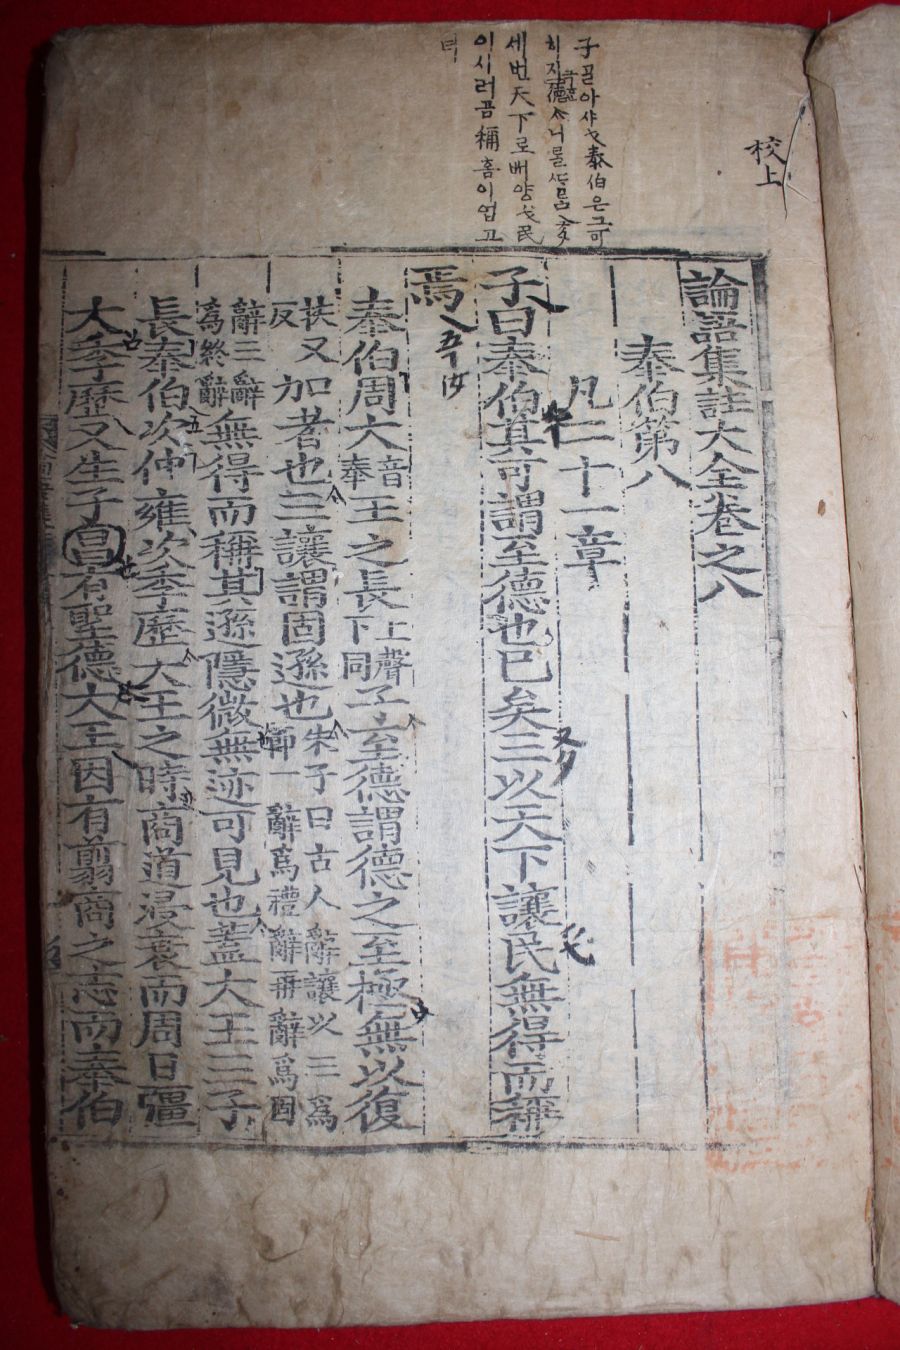 校上
子 ᄀᆞᆯ아샤ᄃᆡ 泰伯은 그 可
히 지극ᄒᆞᆫ 德이니
세번 天下로ᄡᅥ 양ᄒᆞᄃᆡ 民
이 시러곰 稱홈이 업고
論語集註大全卷之八
泰伯第八
凡二十一章
子曰泰伯其可謂至德也已矣三以天下讓民無得而稱
焉
泰伯周大音泰王之長上聲下同子至德謂德之至極無以復
扶又反加者也三讓謂固遜也朱子曰古人辭讓以三爲節一辭爲禮辭再辭爲固
辭三辭爲終辭無得而稱其遜隱微無迹可見也蓋大王三子
長泰伯次仲雍次季歷大王之時商道浸衰而周日彊
大季歷又生子昌有聖德大王因有翦商之志而泰伯